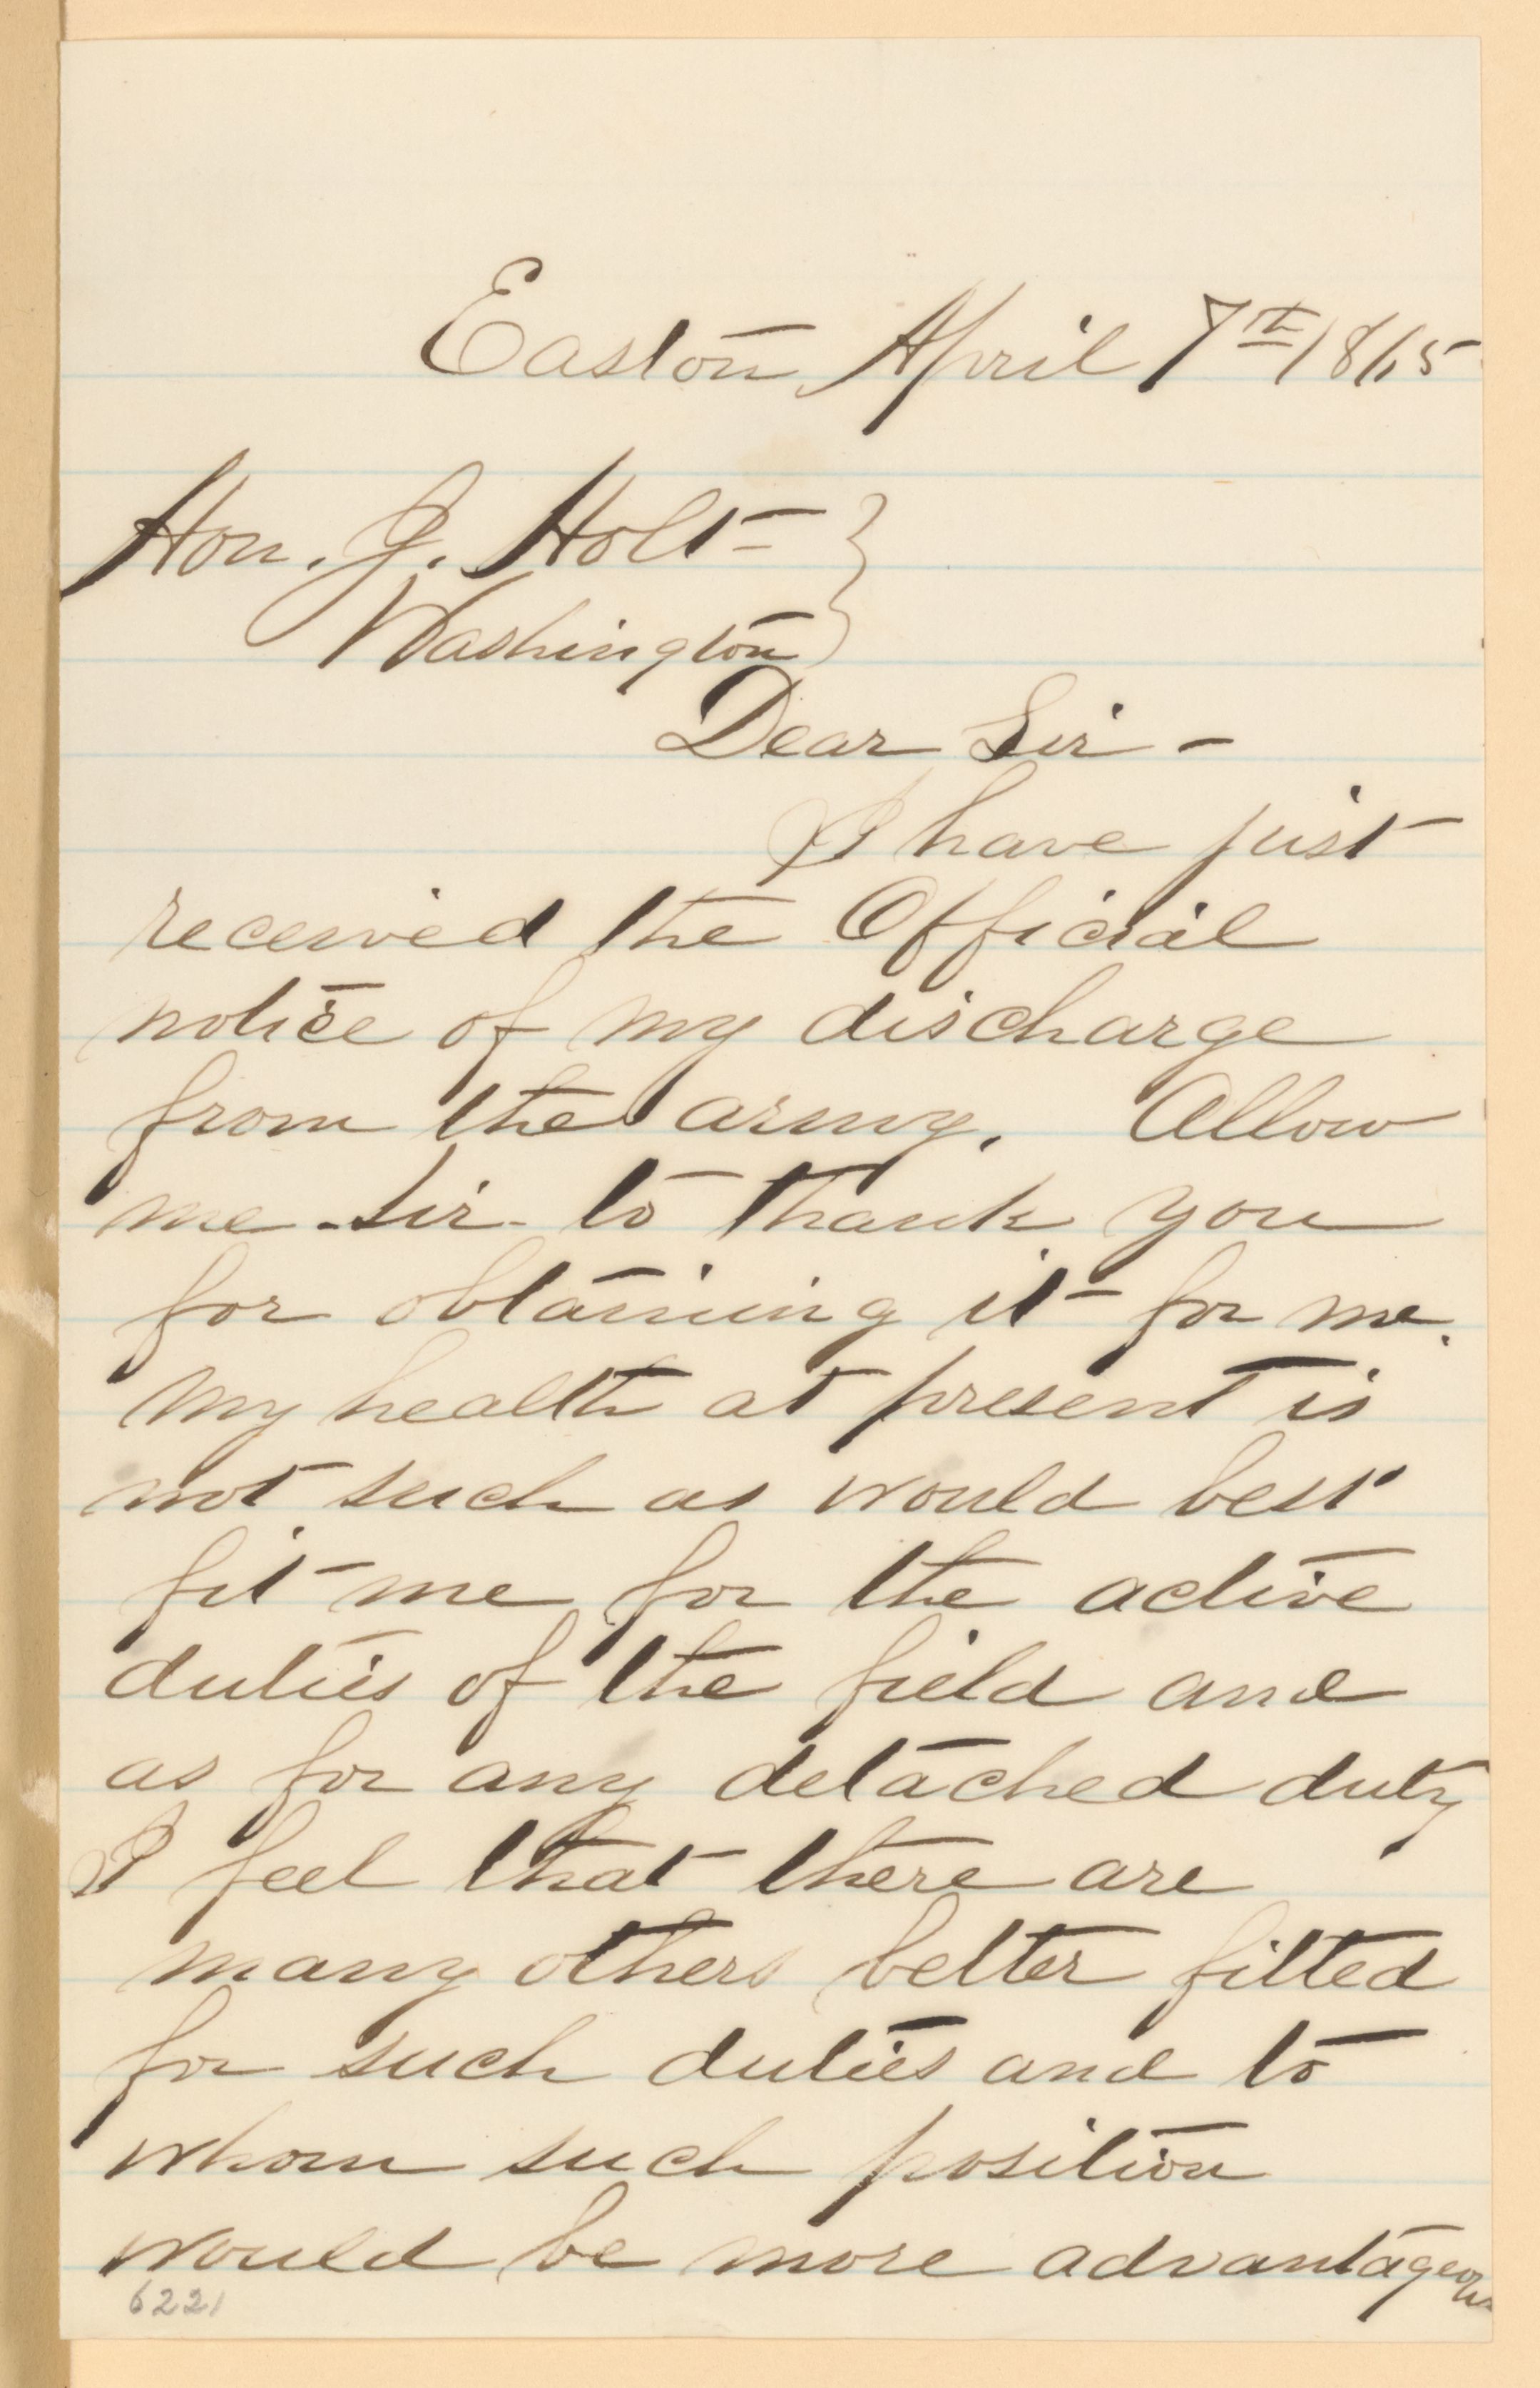 Easton April 7th 1865
Hon. J. Holt
Washington
Dear Sir -
I have just
received the Official
notice of my discharge
from the army. Allow
me - Sir - to thank you
for obtaining it for me.
My health at present is
not such as would best
fit me for the active
duties of the field and
as for any detached duty
I feel that there are
many others better fitted
for such duties and to
whom such position
would be more advantageous
6221